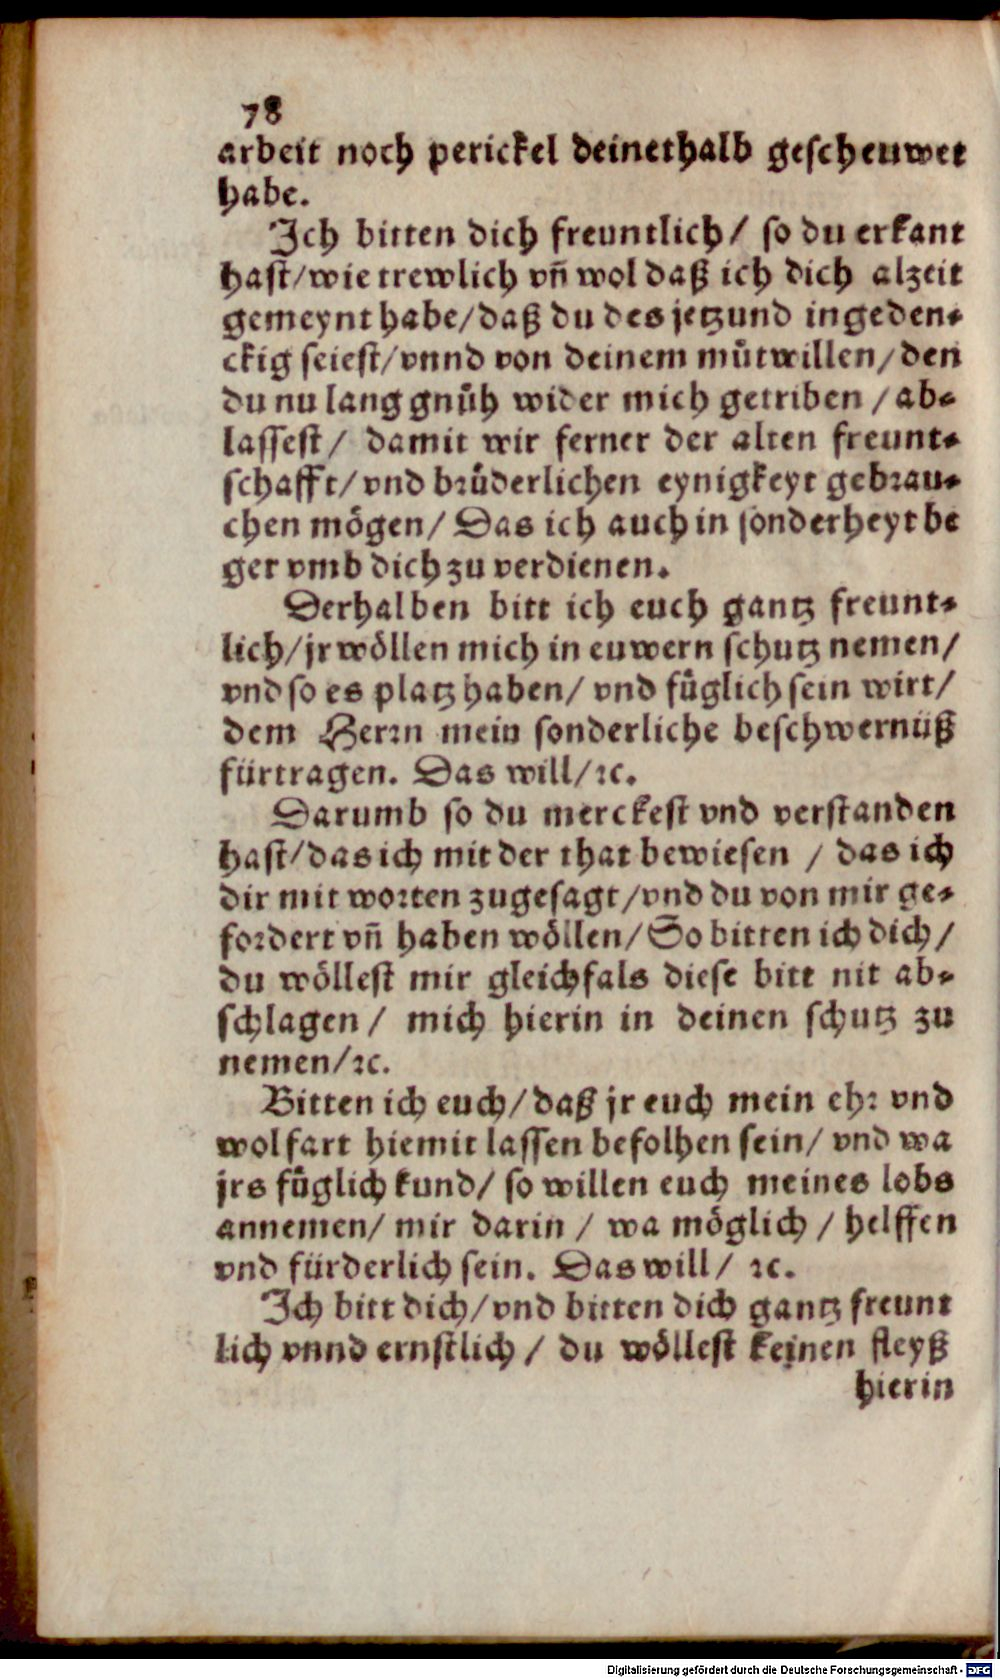 78
arbeit noch perickel deinethalb gescheuwet
habe.
Ich bitten dich freuntlich/ so du erkant
hast/wie trewlich vñ wol daß ich dich alzeit
gemeynt habe/daß du des jetzund ingeden-
ckig seiest/vnnd von deinem můtwillen/den
du nu lang gnůh wider mich getriben / ab-
lassest/ damit wir ferner der alten freunt-
schafft/vnd brůderlichen eynigkeyt gebrau-
chen mögen/ Das ich auch in sonderheyt be
ger vmb dich zu verdienen.
Derhalben bitt ich euch gantz freunt-
lich/jr wöllen mich in euwern schutz nemen/
vnd so es platz haben/ vnd fůglich sein wirt/
dem Herrn mein sonderliche beschwernüß
fürtragen. Das will/ꝛc.
Darumb so du merckest vnd verstanden
hast/das ich mit der that bewiesen / das ich
dir mit worten zugesagt/vnd du von mir ge-
fordert vñ haben wöllen/So bitten ich dich/
du wöllest mir gleichfals diese bitt nit ab-
schlagen/ mich hierin in deinen schutz zu
nemen/ꝛc.
Bitten ich euch/daß jr euch mein ehr vnd
wolfart hiemit lassen befolhen sein/ vnd wa
jrs fůglich kund/ so willen euch meines lobs
annemen/ mir darin / wa möglich / helffen
vnd fürderlich sein. Das will/ ꝛc.
Ich bitt dich/vnd bitten dich gantz freunt
lich vnnd ernstlich / du wöllest keinen fleyß
hierin
Digitalisierung gefördert durch die Deutsche Forschungsgemeinschaft - DFG